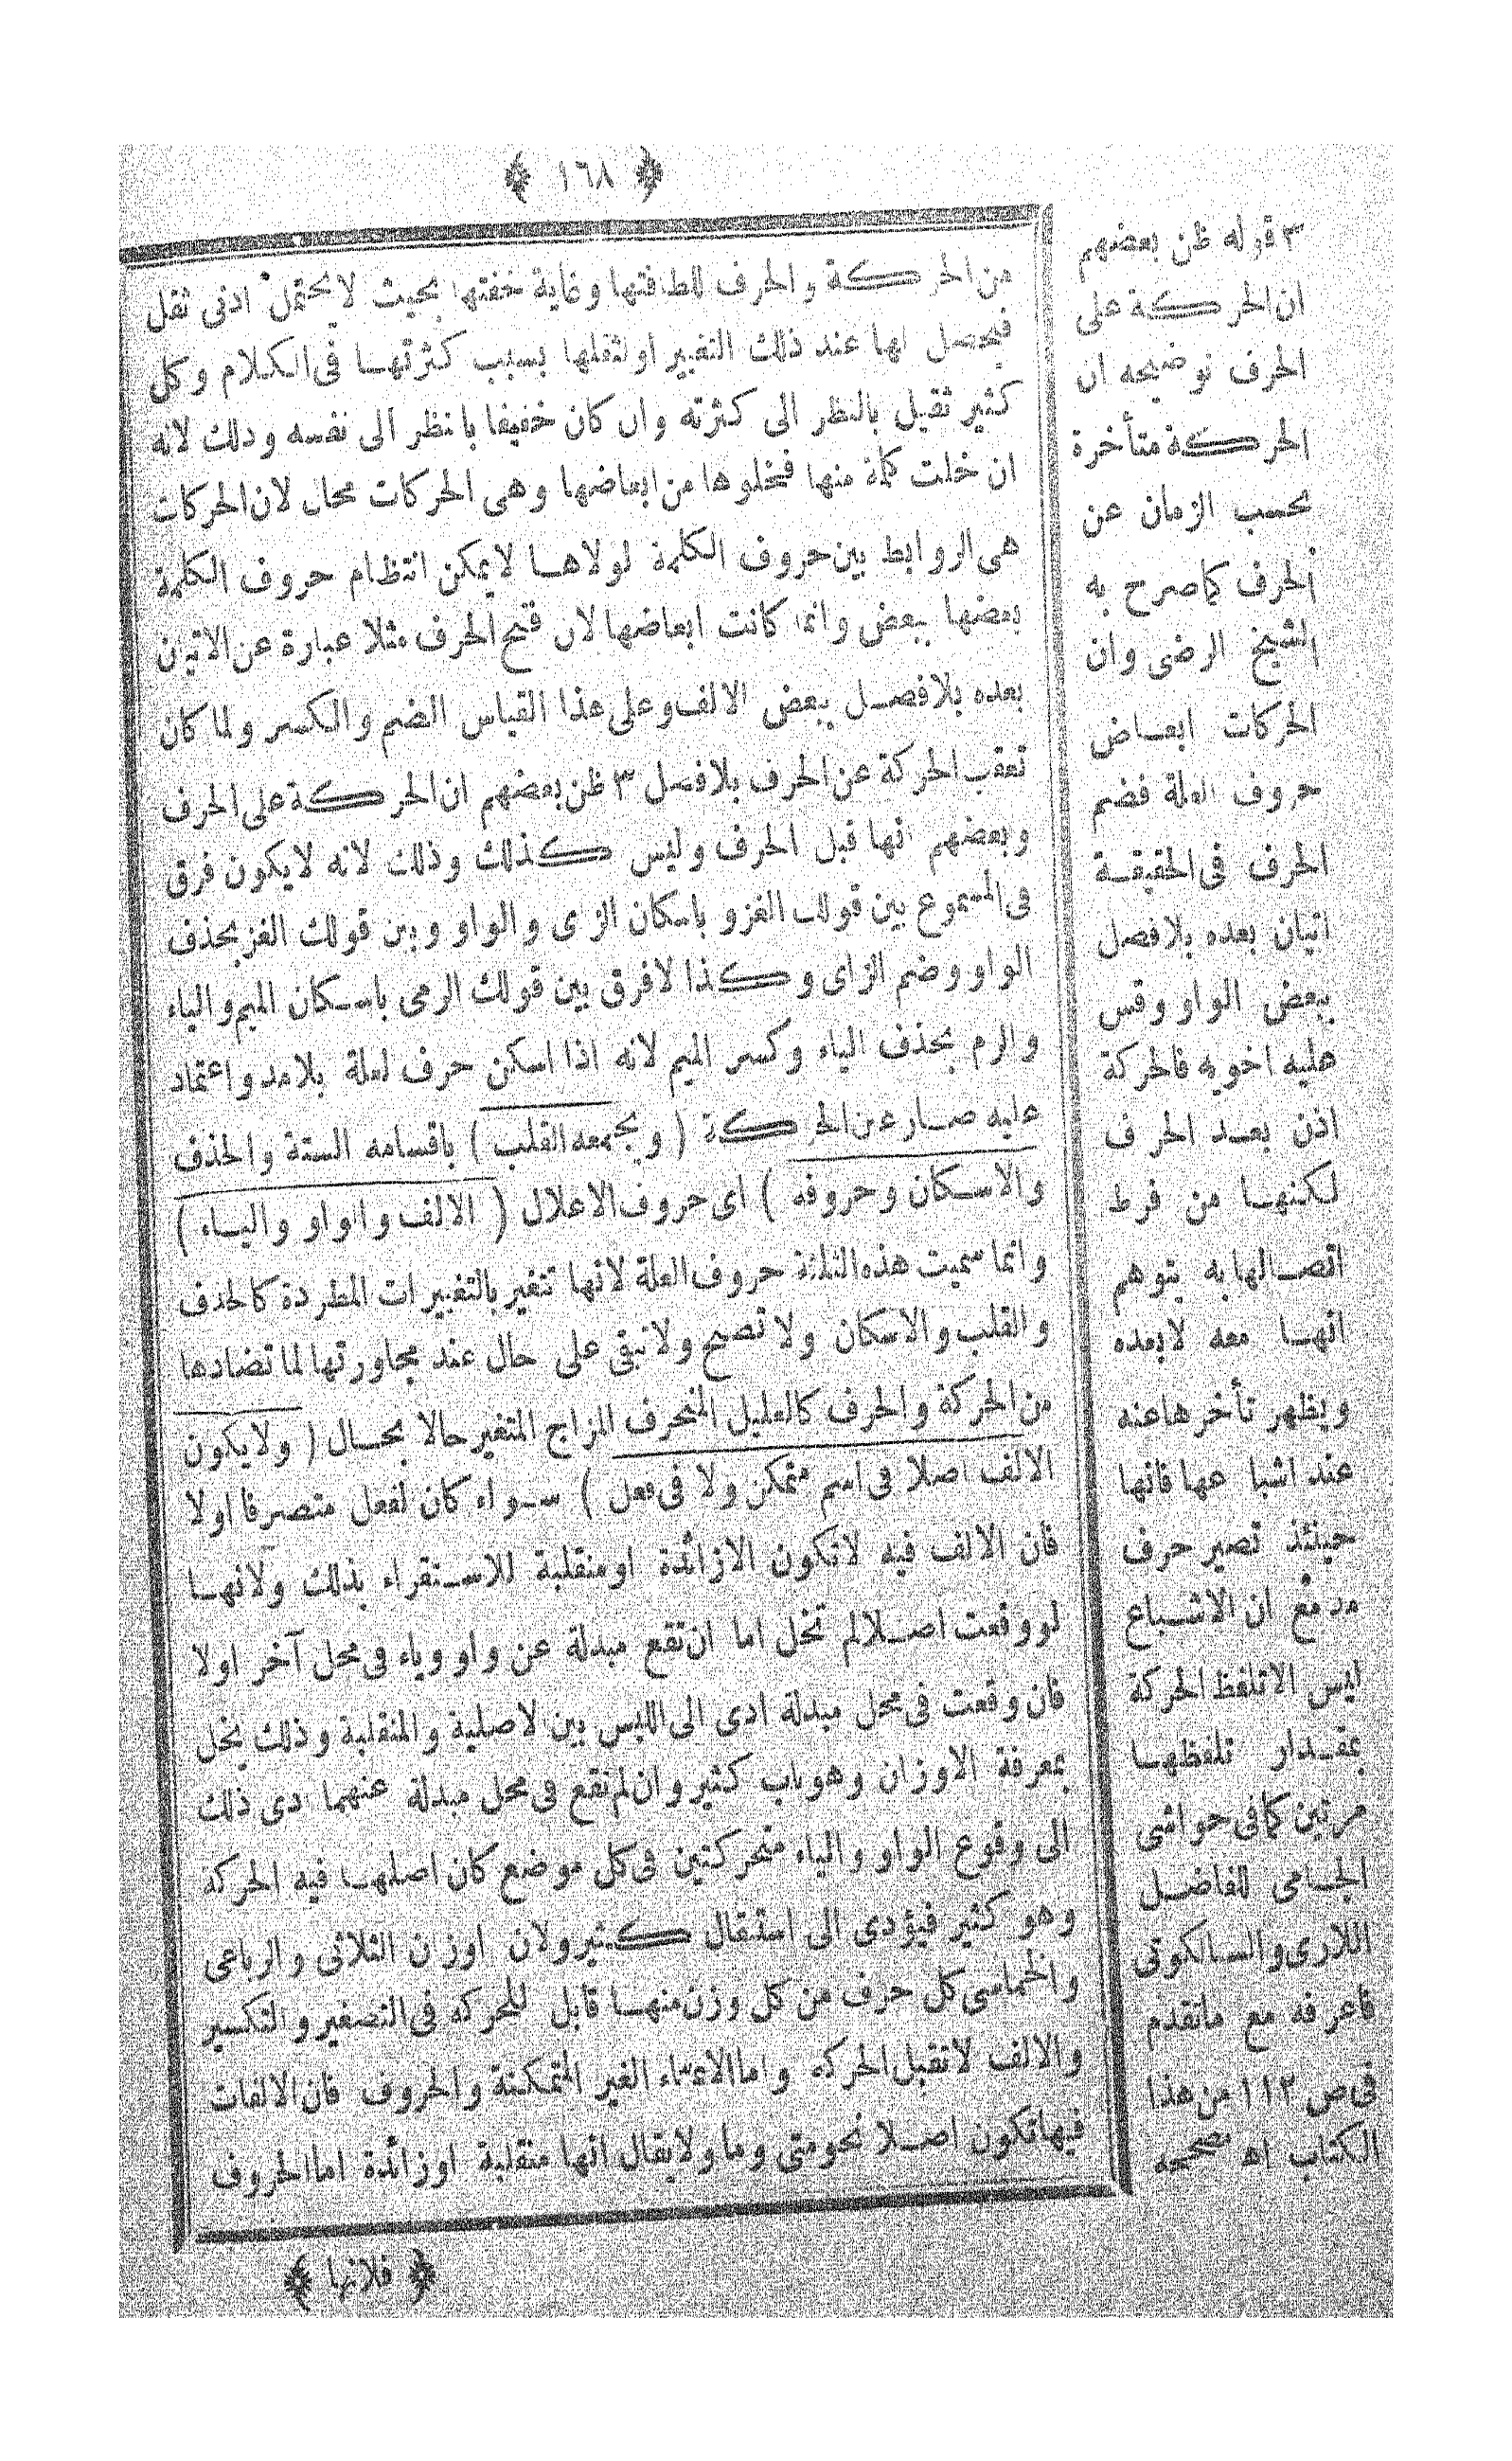 ﴿ ١٦٨ ﴾
من الحركة والحرف للطافتها وغاية خفتها بحيث لايحتمل ادنى ثقل
فيحصل لها عند ذلك التغيير او لثقلها بسبب كثرتها فى الكلام وكل
كثير ثقيل بالنظر الى كثرته وان كان خفيفا بالنظر الى نفسه وذلك لانه
ان خلت كلمة منها فخلوها من ابعاضها وهى الحركات محال لان الحركات
هى الروابط بين حروف الكلمة لولاها لايمكن انتظام حروف الكلمة
بعضها ببعض وانما كانت ابعاضها لان فتح الحرف مثلا عبارة عن الاتيان
بعده بلافصل ببعض الالف وعلى هذا القياس الضم والكسر ولما كان
تعقب الحركة عن الحرف بلافصل ٣ ظن بعضهم ان الحركة على الحرف
وبعضهم انها قبل الحرف وليس كذلك وذلك لانه لايكون فرق
فى المسموع بين قولك الغزو باسكان الزاى والواو وبين قولك الغز بحذف
الواو وضم الزاى وكذا لافرق بين قولك الرمى باسكان الميم والياء
والرم بحذف الياء وكسر الميم لانه اذا اسكن حرف لعلة بلامد واعتماد
عليه صار عين الحركة ( ويجمعه القلب ) باقسامه الستة والحذف
والاسكان وحروفه ) اى حروف الاعلال ( الالف والواو والياء )
وانما سميت هذه الثلثة حروف العلة لانها تتغير بالتغييرات المطردة كالحذف
والقلب والاسكان ولا تصح ولا تبقى على حال عند مجاورتها لما تضادها
من الحركة والحرف كالعليل المنحرف المزاج المتغير حالا بحال ( ولايكون
الالف اصلا فى اسم متمكن ولا فى فعل ) سواء كان لفعل متصرفا اولا
فان الالف فيه لاتكون الازائدة او منقلبة للاستقراء بذلك ولانها
لو وقعت اصلا لم تخل اما ان تقع مبدلة عن واو وياء فى محل آخر اولا
فان وقعت فى محل مبدلة ادى الى اللبس بين لاصلية والمنقلبة وذلك يخل
بمعرفة الاوزان وهو باب كثير وان لم تقع فى محل مبدلة عنهما ادى ذلك
الى وقوع الواو والياء متحركتين فى كل موضع كان اصلها فيه الحركة
وهو كثير فيؤدى الى استثقال كثير ولان اوزن الثلاثى والرباعى
والخماسى كل حرف من كل وزن منها قابل للحركه فى التصغير والتكسير
والالف لاتقبل الحركه واما الاسماء الغير المتمكنة والحروف فان الالفات
فيها تكون اصلا نحو متى وما ولا يقال انها منقلبة او زائدة اما الحروف
﴿ فلانها ﴾
٣ قوله ظن بعضهم
ان الحركة على
الحرف توضيحه ان
الحركة متأخرة
بحسب الزمان عن
الحرف كماصرح به
الشيخ الرضى وان
الحركات ابعاض
حروف العلة فضم
الحرف فى الحقيقة
اتيان بعده بلافصل
ببعض الواو وقس
عليه اخويه فالحركة
اذن بعد الحرف
لكنها من فرط
اتصالها به يتوهم
انها معه لابعده
ويظهر تأخرها عنه
عند اشباعها فانها
حينئذ تصير حرف
مد مع ان الاشباع
ليس الاتلفظ الحركة
بمقدار تلفظها
مرتين كمافى حواشى
الجامى للفاضل
اللارى والسالكوتى
فاعرفه مع ماتقدم
فى ص ١١٢ من هذا
الكتاب اه مصححه